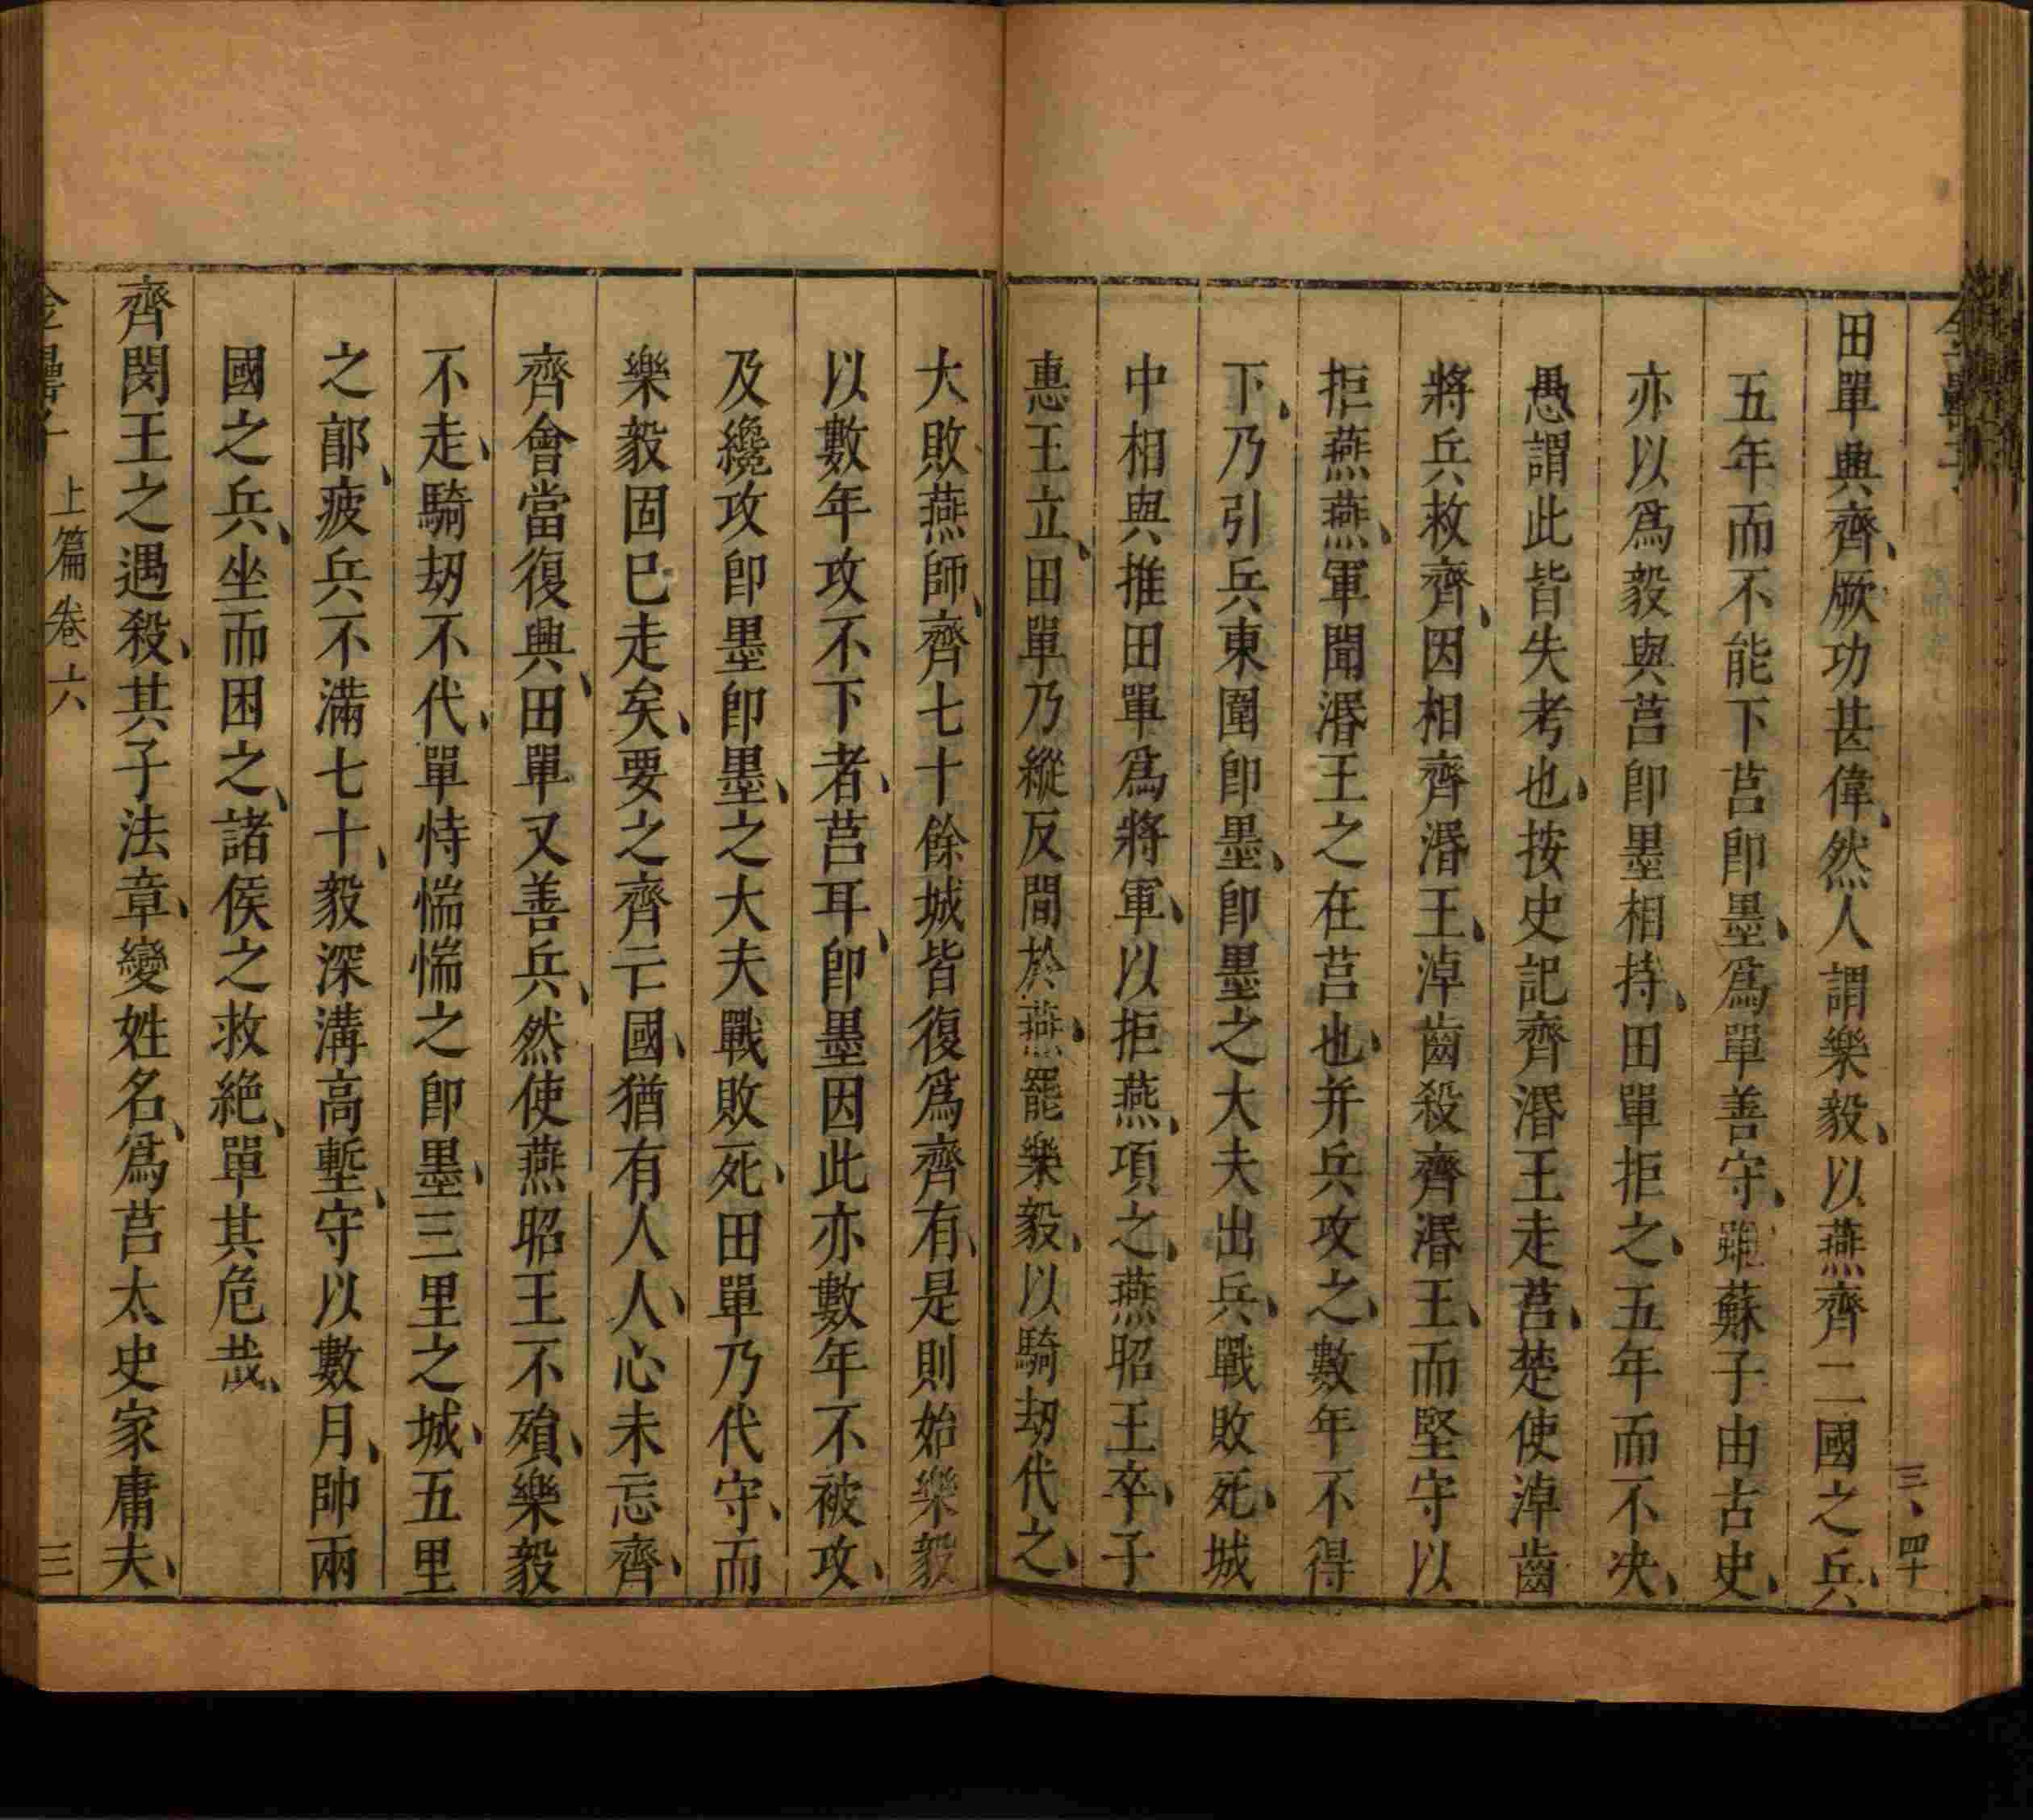 三、四十
田單興齊、厥功甚偉、然人謂樂毅、以燕齊二國之兵、
五年而不能下莒卽墨、爲單善守、雖蘇子由古史、
亦以爲毅與莒卽墨相持、田單拒之、五年而不决、
愚謂此皆失考也、按史記齊湣王走莒、楚使淖齒
將兵救齊、因相齊湣王、淖齒殺齊湣王、而堅守以
拒燕燕、軍聞湣王之在莒也、并兵攻之、數年不得
下、乃引兵東圍卽墨、卽墨之大夫出兵、戰敗死、城
中相與推田單爲將軍、以拒燕、項之、燕昭王卒、子
惠王立、田單乃縱反間於燕、罷樂毅、以騎刼代之、
大敗燕師、齊七十餘城皆復爲齊有、是則始樂毅
以數年攻不下者、莒耳、卽墨因此亦數年不被攻、
及纔攻卽墨卽墨、之大夫戰敗死、田單乃代守、而
樂毅固已走矣、要之齊亡國、猶有人人、心未忘齊、
齊會當復興、田單又善兵、然使燕昭王不殞、樂毅
不走、騎刼不代、單恃惴惴之卽墨、三里之城、五里
之郭、疲兵不滿七十、毅深溝高塹、守以數月、帥兩
國之兵、坐而困之、諸侯之救絶、單其危哉、
齊閔王之遇殺、其子法章、變姓名、爲莒太史家庸夫、
金罍子 上篇卷六 三